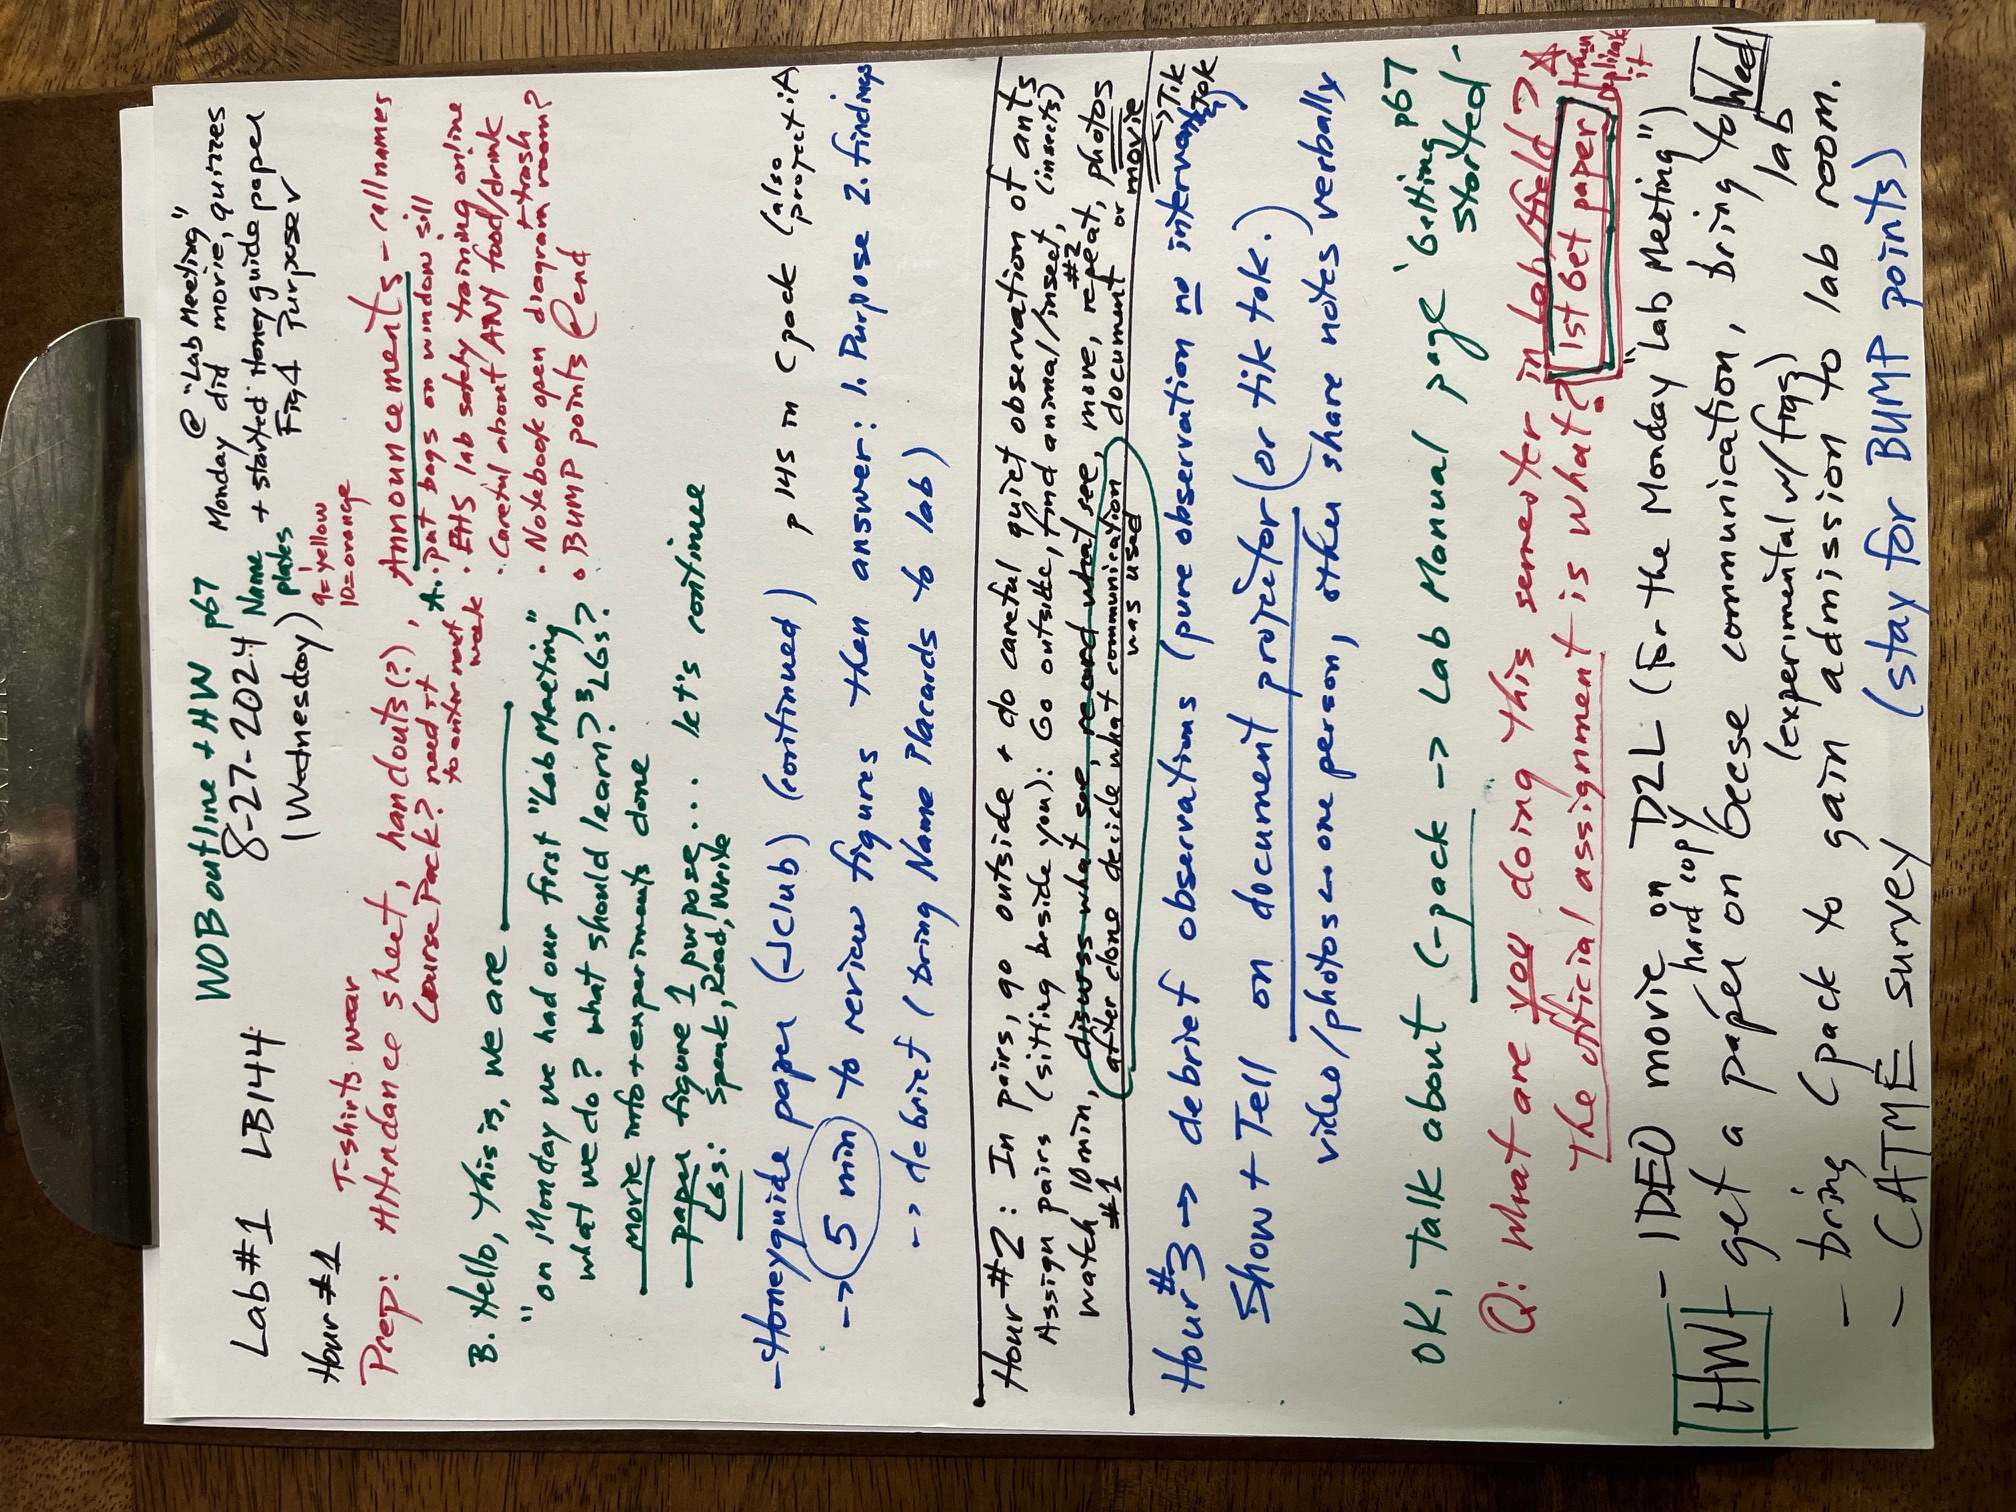 WOB outline + HW p67
Lab #1 LB144 8-27-2024 (Wednesday)
@ "Lab Meeting"
Monday did movie, quizzes
Name plates + started Honeyguide paper
Fig 1 Purpose
9=yellow
10=orange
Hour #1
T-shirts wear
Prep: Attendance sheet, handouts(?),
Course Pack? need it to enter next week
A. Announcements - call names
· put bags on window sill
· EHS lab safety training online
· Careful about ANY food/drink + trash
· Notebook open diagram room?
· BUMP points @ end
B. Hello, this is, we are
"on Monday we had our first "Lab Meeting"
what we do? what should learn? 3 LGs?
movie info + experiments done
paper figure 1 purpose... let's continue
LGs: Speak, Read, Write
- Honeyguide paper (Jclub) (continued) p 145 in Cpack (also project it)
-> 5 min to review figures then answer: 1. Purpose 2. findings
-> debrief (bring Name Placards to lab)
Hour #2: In pairs, go outside + do careful quiet observation of ants
Assign pairs (sitting beside you): Go outside, find animal/insect, (insects)
watch #1 10 min, discuss what saw, record what see, move, repeat #2, photos or movie
(after done decide what communication was used) document document
-> Tik Tok
Hour #3 -> debrief observations (pure observation no interventions)
Show + Tell on document projector (or tik tok.)
video/photos one person, other share notes verbally
OK, Talk about C-pack -> Lab Manual page 'Getting started - p67
Q: What are you doing this semester in lab/field?
The official assignment is what? 1st Get paper then replink it
HW - IDEO movie on D2L (for the Monday "Lab Meeting")
- get a hard copy paper on Geese communication, bring to Wed lab
(experimental w/figs)
- bring Cpack to gain admission to lab room.
- CATME survey (stay for BUMP points)